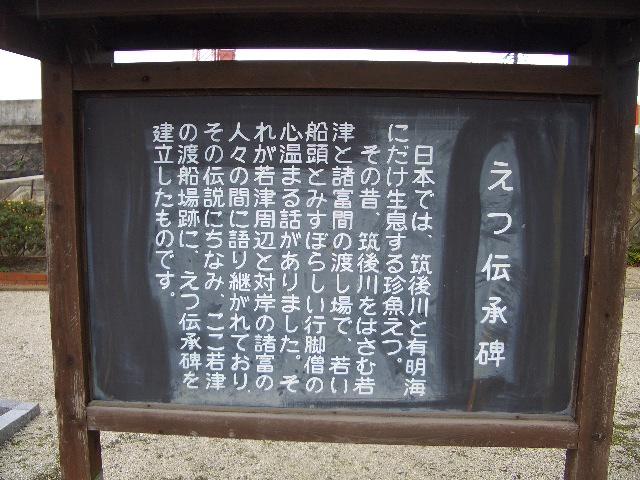 えつ伝承碑
日本では、筑後川と有明海
にだけ生息する珍魚えつ。
その昔、筑後川をはさむ若
津と諸富間の渡し場で、若い
船頭とみすぼらしい行脚僧の
心温まる話がありました。そ
れが若津周辺と対岸の諸富の
人々の間に語り継がれており、
その伝説にちなみ、ここ若津
の渡船場跡に、えつ伝承碑を
建立したものです。